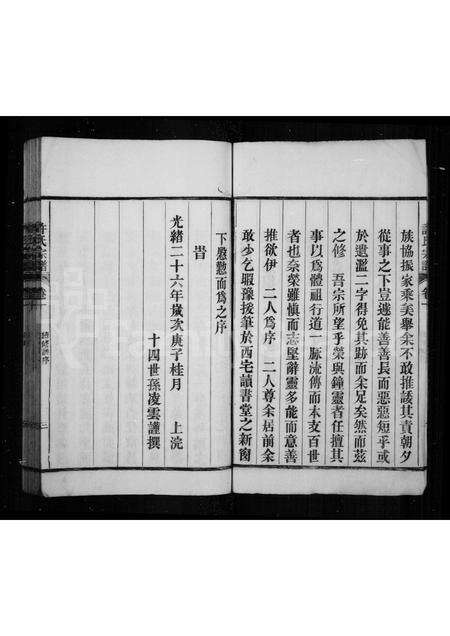 族協振家乘美舉余不敢推諉其責朝夕
從事之下豈遽能善善長而惡惡短乎或
於遺濫二字得免其跡而余足矣然而茲
之修 吾宗所望乎榮與鐘靈者任擅其
事以為體祖行道一脈流傳而本支百世
者也奈榮雖慎而志堅辭靈多能而意善
推欲伊 二人為序 二人尊余居前余
敢少乞暇豫援筆於西宅讀書堂之新窗
下愍懃而為之序
旹
光緒二十六年歲次庚子桂月 上浣
十四世孫凌雲謹撰
許氏宗譜 卷一